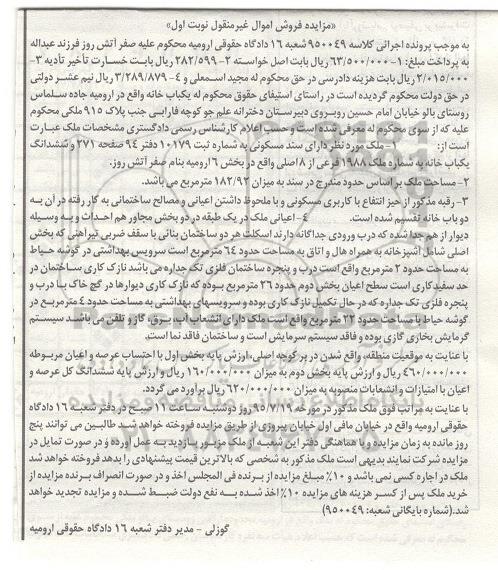 «مزایده فروش اموال غیرمنقول نوبت اول»
به موجب پرونده اجرائی کلاسه ۹۵۰۰۴۹ شعبه ۱۶ دادگاه حقوقی ارومیه محکوم علیه صفر آتش روز فرزند عبداله
به پرداخت مبلغ: ۱- ۶۳/۵۰۰/۰۰۰ ریال بابت اصل خواسته ۲- ۲۸۲/۵۹۹ ریال بابت خسارت تأخیر تأدیه ۳-
۲/۰۱۵/۰۰۰ ریال بابت هزینه دادرسی در حق محکوم له مجید اسمعلی و ۴- ۳/۲۸۹/۸۷۹ ریال نیم عشر دولتی
در حق دولت محکوم گردیده است در راستای استیفای حقوق محکوم له یکباب خانه واقع در ارومیه جاده سلماس
روستای بالو خیابان امام حسین روبروی دبیرستان دخترانه علم جو کوچه فارابی جنب پلاک ۹۱۵ ملکی محکوم
علیه که از سوی محکوم له معرفی شده است و حسب اعلام کارشناس رسمی دادگستری مشخصات ملک عبارت
است از: ۱- ملک مورد نظر دارای سند مسکونی به شماره ثبت ۱۰۱۷۹ دفتر ۹۴ صفحه ۲۷۱ و ششدانگ
یکباب خانه به شماره ملک ۱۹۸۸ فرعی از ۸ اصلی واقع در بخش ۶ ارومیه بنام صفر آتش روز.
۲- مساحت ملک بر اساس حدود مندرج در سند به میزان ۱۸۲/۹۲ مترمربع می باشد.
۳- رقبه مذکور از حیز انتفاع با کاربری مسکونی و با ملحوظ داشتن اعیانی و مصالح ساختمانی به کار رفته در آن به
دو باب خانه تقسیم شده است. ۴- اعیانی ملک در یک طبقه در دو بخش مجاور هم احداث و به وسیله
دیوار از هم جدا شده که درب ورودی جداگانه دارند اسکلت هر دو ساختمان بنائی با سقف ضربی تیرآهنی که بخش
اصلی شامل آشپزخانه به همراه هال و اتاق به مساحت حدود ۶۴ مترمربع است سرویس بهداشتی در گوشه حیاط
به مساحت حدود ۲ مترمربع واقع است درب و پنجره ساختمان فلزی تک جداره می باشد نازک کاری ساختمان در
حد سفیدکاری است سطح اعیان بخش دوم حدود ۲۶ مترمربع بوده که نازک کاری دیوارها در گچ خاک با درب و
پنجره فلزی تک جداره که در حال تکمیل نازک کاری بوده و سرویسهای بهداشتی به مساحت حدود ۴ مترمربع در
گوشه حیاط با مساحت حدود ۲۲ مترمربع واقع است ملک دارای انشعاب آب، برق، گاز و تلفن می باشد سیستم
گرمایش بخاری گازی بوده و فاقد سیستم سرمایش است و ساختمان فاقد نما است.
با عنایت به موقعیت منطقه، واقع شدن در بر کوچه اصلی، ارزش پایه بخش اول با احتساب عرصه و اعیان مربوطه
۴۶۰/۰۰۰/۰۰۰ ریال و ارزش پایه بخش دوم به میزان ۱۶۰/۰۰۰/۰۰۰ ریال و ارزش پایه ششدانگ کل عرصه و
اعیان با امتیازات و انشعابات منصوبه به میزان ۶۲۰/۰۰۰/۰۰۰ ریال برآورد می گردد.
با عنایت به مراتب فوق ملک مذکور در مورخه ۹۵/۷/۱۹ روز دوشنبه ساعت ۱۱ صبح در دفتر شعبه ۱۶ دادگاه
حقوقی ارومیه واقع در خیابان مافی اول خیابان پیروزی از طریق مزایده فروخته خواهد شد طالبین می توانند پنج
روز مانده به زمان مزایده و با هماهنگی دفتر این شعبه از ملک مزبور بازدید به عمل آورده و در صورت تمایل در
مزایده شرکت نمایند بدیهی است ملک مذکور به شخصی که بالاترین قیمت پیشنهادی را بدهد فروخته خواهد شد
ملک در اجاره کسی نمی باشد و ۱۰% مبلغ مزایده از برنده فی المجلس اخذ و در صورت انصراف برنده مزایده از
خرید ملک پس از کسر هزینه های مزایده ۱۰% اخذ شده به نفع دولت ضبط شده و مزایده تجدید خواهد
شد.(شماره بایگانی شعبه: ۹۵۰۰۴۹)
گوزلی - مدیر دفتر شعبه ۱۶ دادگاه حقوقی ارومیه